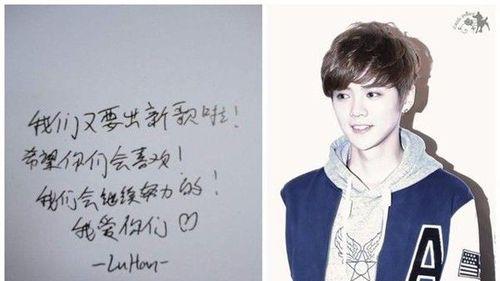 我们又要出新歌啦！
希望你们会喜欢！
我们会继续努力的！
我爱你们♡
-LuHan-
A